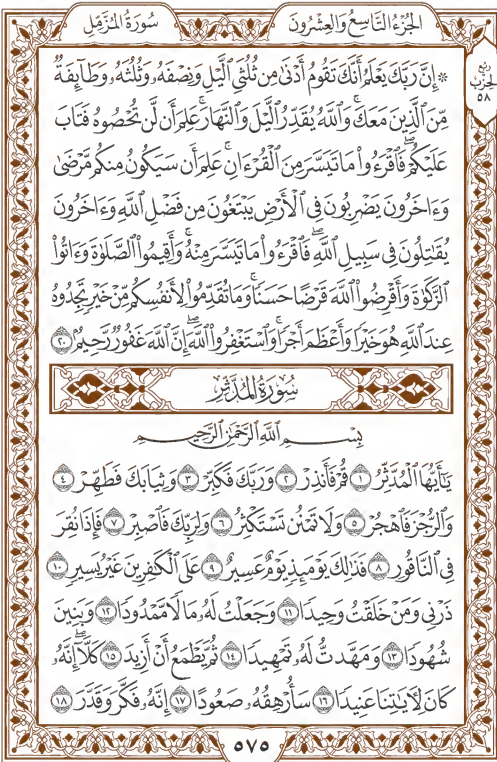 سُورَةُ المُزَّمِّل
الجُزْءُ التَّاسِعُ وَالعِشْرُونَ
ربع
الحزب
٥٨
* إِنَّ رَبَّكَ يَعْلَمُ أَنَّكَ تَقُومُ أَدْنَىٰ مِن ثُلُثَيِ ٱلَّيْلِ وَنِصْفَهُۥ وَثُلُثَهُۥ وَطَآئِفَةٌ
مِّنَ ٱلَّذِينَ مَعَكَۚ وَٱللَّهُ يُقَدِّرُ ٱلَّيْلَ وَٱلنَّهَارَۚ عَلِمَ أَن لَّن تُحْصُوهُ فَتَابَ
عَلَيْكُمْۖ فَٱقْرَءُوا۟ مَا تَيَسَّرَ مِنَ ٱلْقُرْءَانِۚ عَلِمَ أَن سَيَكُونُ مِنكُم مَّرْضَىٰ
وَءَاخَرُونَ يَضْرِبُونَ فِي ٱلْأَرْضِ يَبْتَغُونَ مِن فَضْلِ ٱللَّهِ وَءَاخَرُونَ
يُقَٰتِلُونَ فِي سَبِيلِ ٱللَّهِۖ فَٱقْرَءُوا۟ مَا تَيَسَّرَ مِنْهُۚ وَأَقِيمُوا۟ ٱلصَّلَوٰةَ وَءَاتُوا۟
ٱلزَّكَوٰةَ وَأَقْرِضُوا۟ ٱللَّهَ قَرْضًا حَسَنًاۚ وَمَا تُقَدِّمُوا۟ لِأَنفُسِكُم مِّنْ خَيْرٍ تَجِدُوهُ
عِندَ ٱللَّهِ هُوَ خَيْرًا وَأَعْظَمَ أَجْرًاۚ وَٱسْتَغْفِرُوا۟ ٱللَّهَۖ إِنَّ ٱللَّهَ غَفُورٌ رَّحِيمٌۢ ٢٠
سُورَةُ المُدَّثِّر
بِسْمِ ٱللَّهِ ٱلرَّحْمَٰنِ ٱلرَّحِيمِ
يَٰٓأَيُّهَا ٱلْمُدَّثِّرُ ١ قُمْ فَأَنذِرْ ٢ وَرَبَّكَ فَكَبِّرْ ٣ وَثِيَابَكَ فَطَهِّرْ ٤
وَٱلرُّجْزَ فَٱهْجُرْ ٥ وَلَا تَمْنُن تَسْتَكْثِرُ ٦ وَلِرَبِّكَ فَٱصْبِرْ ٧ فَإِذَا نُقِرَ
فِي ٱلنَّاقُورِ ٨ فَذَٰلِكَ يَوْمَئِذٍ يَوْمٌ عَسِيرٌ ٩ عَلَى ٱلْكَٰفِرِينَ غَيْرُ يَسِيرٍ ١٠
ذَرْنِي وَمَنْ خَلَقْتُ وَحِيدًا ١١ وَجَعَلْتُ لَهُۥ مَالًا مَّمْدُودًا ١٢ وَبَنِينَ
شُهُودًا ١٣ وَمَهَّدتُّ لَهُۥ تَمْهِيدًا ١٤ ثُمَّ يَطْمَعُ أَنْ أَزِيدَ ١٥ كَلَّآۖ إِنَّهُۥ
كَانَ لِأٓيَٰتِنَا عَنِيدًا ١٦ سَأُرْهِقُهُۥ صَعُودًا ١٧ إِنَّهُۥ فَكَّرَ وَقَدَّرَ ١٨
٥٧٥